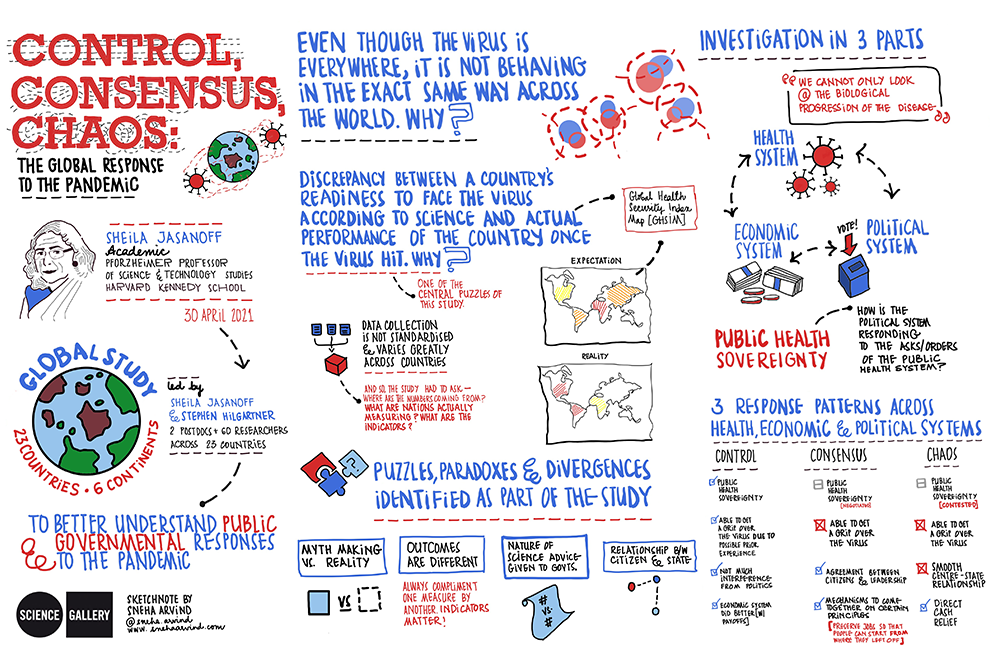 CONTROL,
CONSENSUS,
CHAOS:
THE GLOBAL RESPONSE
TO THE PANDEMIC
SHEILA JASANOFF
Academic
PFORZHEIMER PROFESSOR
OF SCIENCE & TECHNOLOGY STUDIES
HARVARD KENNEDY SCHOOL
30 APRIL 2021
GLOBAL STUDY
23 COUNTRIES • 6 CONTINENTS
led by
SHEILA JASANOFF
& STEPHEN HILGARTNER
2 POSTDOCS + 60 RESEARCHERS
ACROSS 23 COUNTRIES
TO BETTER UNDERSTAND PUBLIC
& GOVERNMENTAL RESPONSES
TO THE PANDEMIC
SCIENCE GALLERY
SKETCHNOTE BY
SNEHA ARVIND
@sneha.arvind
www.snehaarvind.com
EVEN THOUGH THE VIRUS IS
EVERYWHERE, IT IS NOT BEHAVING
IN THE EXACT SAME WAY ACROSS
THE WORLD. WHY?
DISCREPANCY BETWEEN A COUNTRY'S
READINESS TO FACE THE VIRUS
ACCORDING TO SCIENCE AND ACTUAL
PERFORMANCE OF THE COUNTRY ONCE
THE VIRUS HIT. WHY?
ONE OF THE
CENTRAL PUZZLES OF
THIS STUDY.
Global Health
Security Index
Map [GHSIM]
EXPECTATION
REALITY
DATA COLLECTION
IS NOT STANDARDISED
& VARIES GREATLY
ACROSS COUNTRIES
AND SO, THE STUDY HAD TO ASK —
WHERE ARE THE NUMBERS COMING FROM?
WHAT ARE NATIONS ACTUALLY
MEASURING? WHAT ARE THE
INDICATORS?
PUZZLES, PARADOXES & DIVERGENCES
IDENTIFIED AS PART OF THE STUDY
MYTH MAKING
VS. REALITY
VS
OUTCOMES
ARE DIFFERENT
ALWAYS COMPLIMENT
ONE MEASURE BY
ANOTHER INDICATORS
MATTER!
NATURE OF
SCIENCE ADVICE
GIVEN TO GOVTS.
#
VS.
#
RELATIONSHIP B/W
CITIZEN & STATE
INVESTIGATION IN 3 PARTS
WE CANNOT ONLY LOOK
@ THE BIOLOGICAL
PROGRESSION OF THE DISEASE
HEALTH
SYSTEM
ECONOMIC
SYSTEM
VOTE!
POLITICAL
SYSTEM
PUBLIC HEALTH
SOVEREIGNTY
HOW IS THE
POLITICAL SYSTEM
RESPONDING
TO THE ASKS/ORDERS
OF THE PUBLIC
HEALTH SYSTEM?
3 RESPONSE PATTERNS ACROSS
HEALTH, ECONOMIC & POLITICAL SYSTEMS
CONTROL
PUBLIC
HEALTH
SOVEREIGNTY
ABLE TO GET
A GRIP OVER
THE VIRUS DUE TO
POSSIBLE PRIOR
EXPERIENCE
NOT MUCH
INTERFERENCE
FROM POLITICS
ECONOMIC SYSTEM
DID BETTER [W/
PAYOFFS]
CONSENSUS
PUBLIC
HEALTH
SOVEREIGNTY
[NEGOTIATED]
ABLE TO GET
A GRIP OVER
THE VIRUS
AGREEMENT BETWEEN
CITIZENS & LEADERSHIP
MECHANISMS TO COME
TOGETHER ON CERTAIN
PRINCIPLES
[PRESERVE JOBS SO THAT
PEOPLE CAN START FROM
WHERE THEY LEFT OFF]
CHAOS
PUBLIC
HEALTH
SOVEREIGNTY
[CONTESTED]
ABLE TO GET
A GRIP OVER
THE VIRUS
SMOOTH
CENTRE-STATE
RELATIONSHIP
DIRECT
CASH
RELIEF